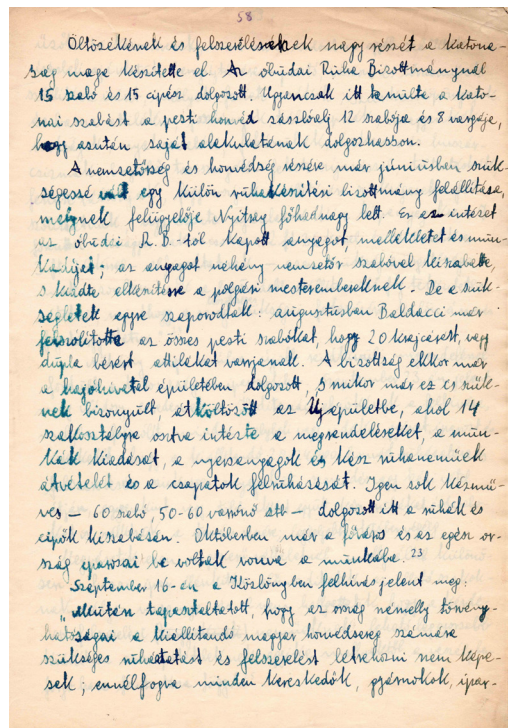 58
Öltözékének és felszerelésének nagy részét a katona-
ság maga készítette el. Az óbudai Ruha Bizottmánynál
15 szabó és 15 cipész dolgozott. Ugyancsak itt tanulta a kato-
nai szabást a pesti honvéd zászlóalj 12 szabója és 8 vargája,
hogy azután saját alakulatának dolgozhasson.
A nemzetőrség és honvédség részére már júniusban szük-
ségessé vált egy külön ruhakészítési bizottmány felállítása,
melynek felügyelője Nyitray főhadnagy lett. Ez az intézet
az óbudai R.B.-tól kapott anyagot, mellékletet és mun-
kadíjat; az anyagot néhány nemzetőr szabóval kiszabatta,
s küldte elkészítésre a polgári mesterembereknek. - De a szük-
ségletek egyre szaporodtak: augusztusban Baldacci már
felszólította az összes pesti szabókat, hogy 20 krajcárért, vagy
dupla bérért attilákat varrjanak. A bizottság ekkor már
a hajóhivatal épületében dolgozott, s mikor már ez is szűk-
nek bizonyult, átköltözött az Ujépületbe, ahol 14
szakosztályra osztva intézte a megrendeléseket, a mun-
kák kiadását, a nyersanyagok és kész ruhaneműek
átvételét és a csapatok felruházását. Igen sok kézmű-
ves - 60 szabó, 50-60 varrónő stb - dolgozott itt a ruhák és
cipők kiszabásán. Októberben már a főváros és az egész or-
szág iparosai be voltak vonva a munkába. 23
Szeptember 16-án a Közlönyben felhívás jelent meg:
"Miután tapasztaltatott, hogy az ország némelly törvény-
hatóságai a kiállítandó magyar honvédsereg számára
szükséges ruházatot és felszerelést létrehozni nem képe-
sek; ennélfogva minden kereskedők, gyárnokok, ipar-